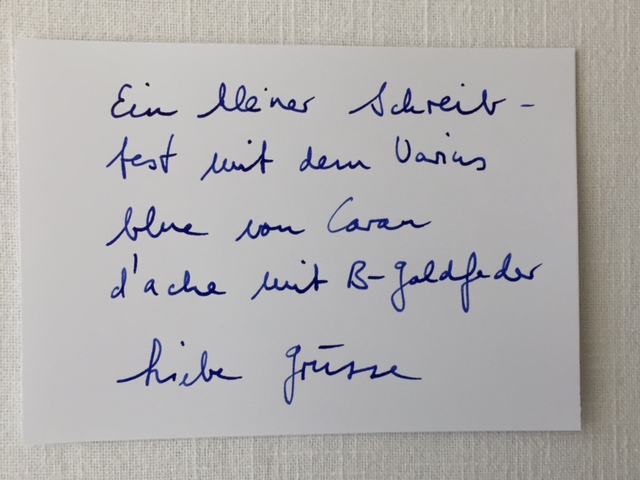 Ein kleiner Schreib-
test mit dem Varius
blue von Caran
d'ache mit B-Goldfeder
Liebe Grüsse